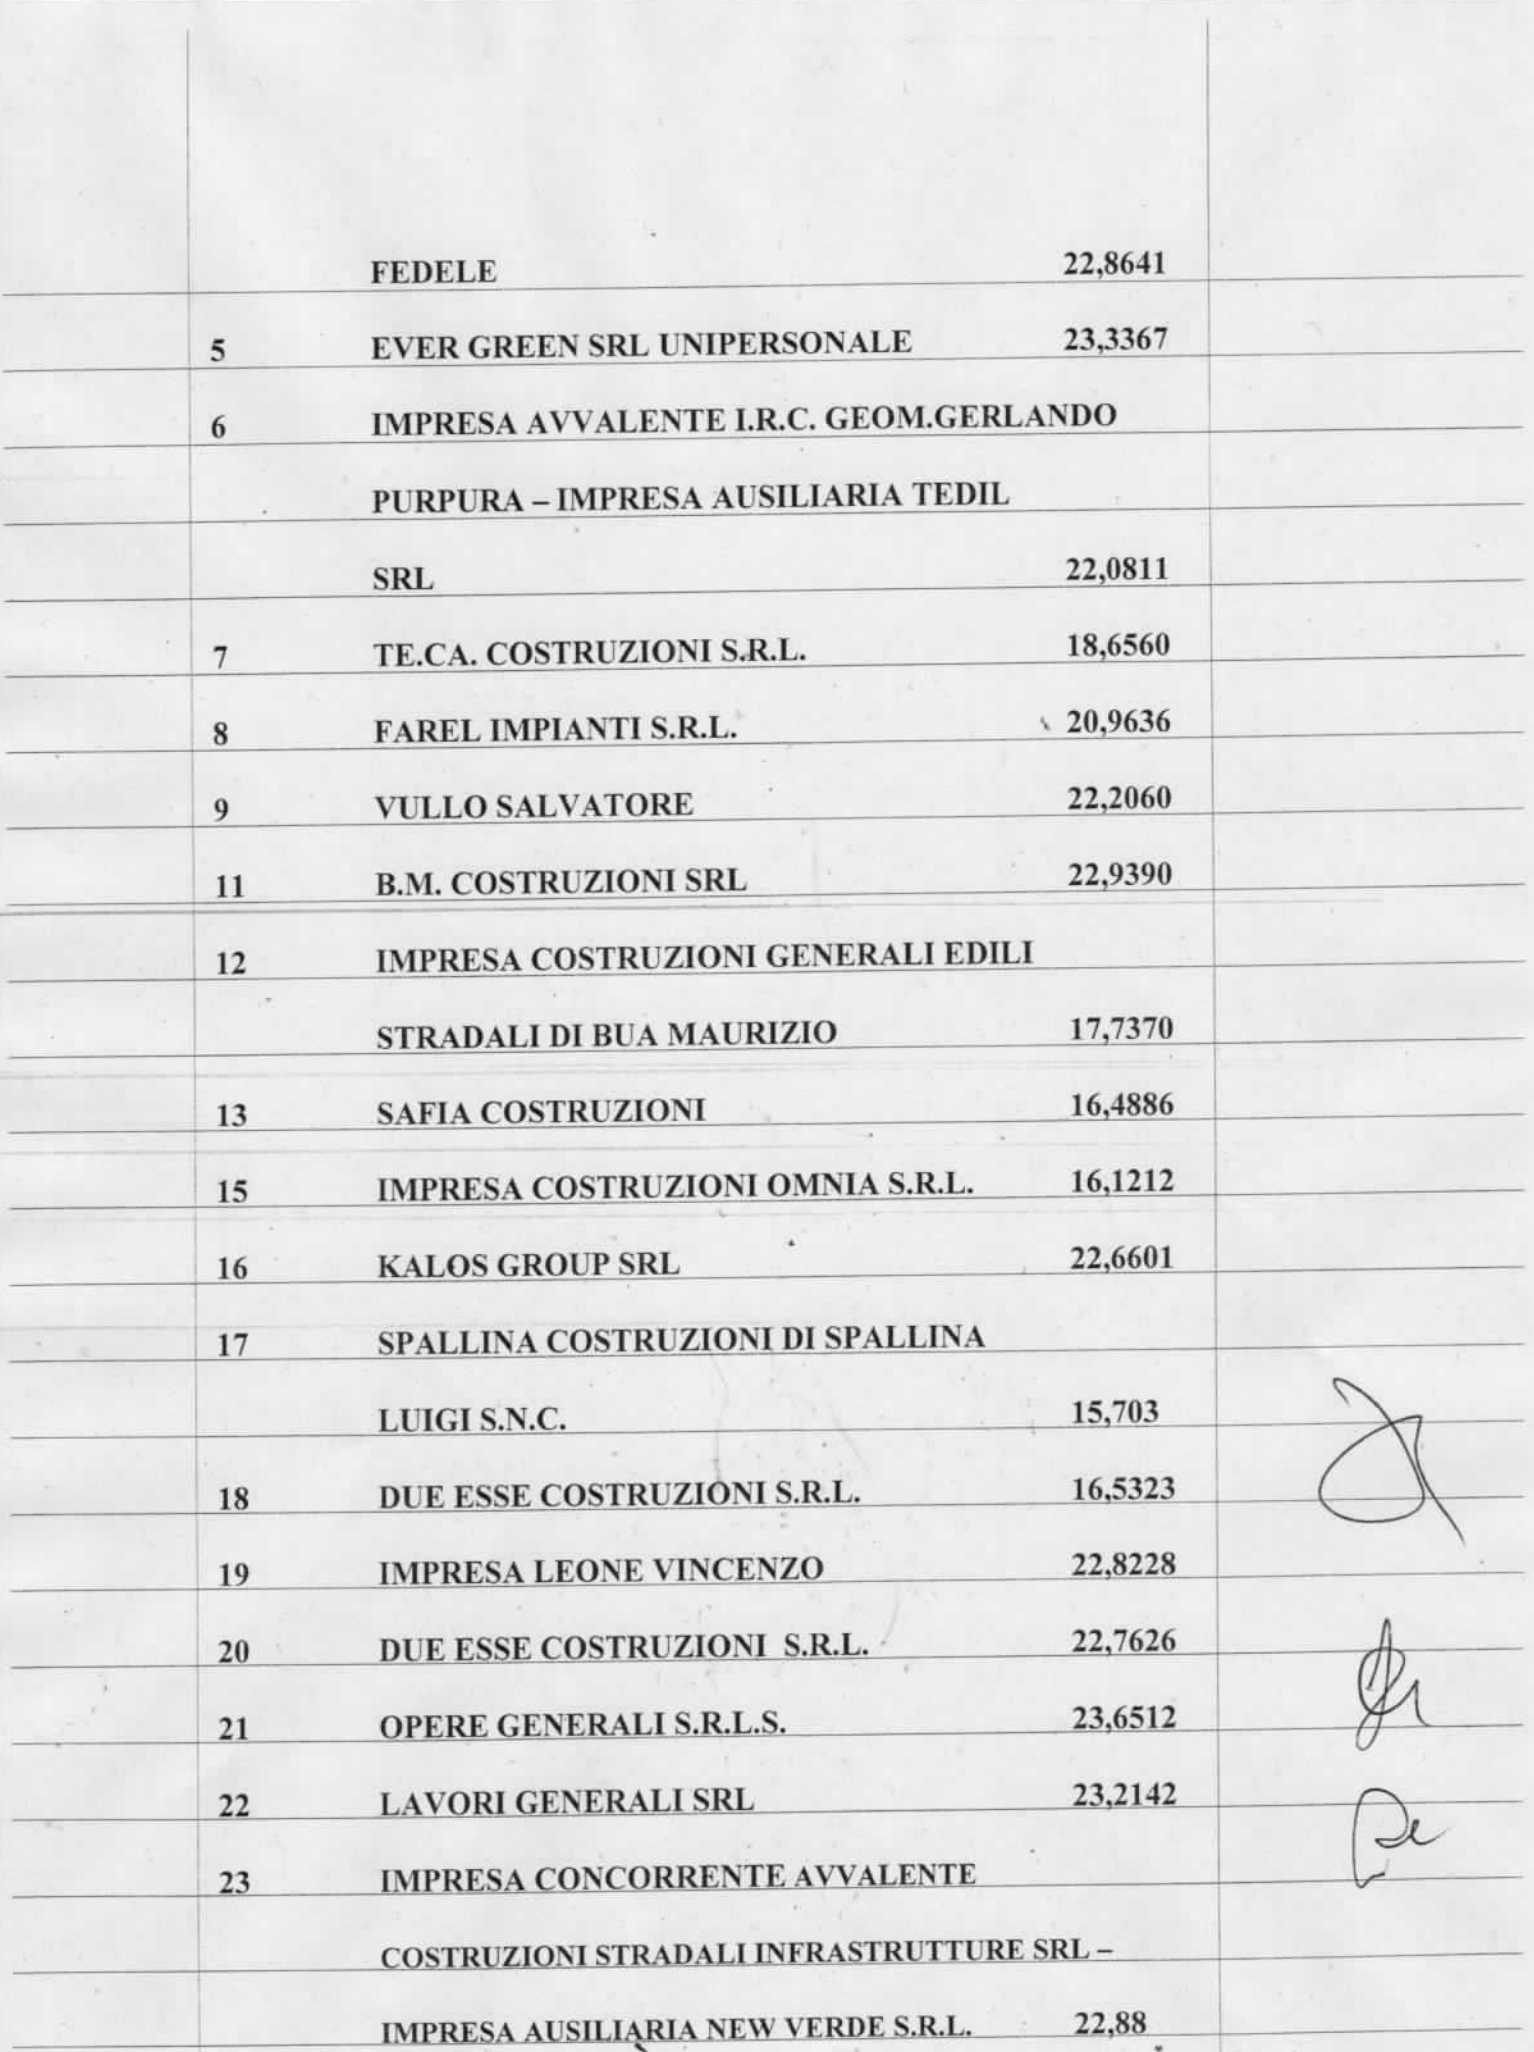 FEDELE 22,8641
5 EVER GREEN SRL UNIPERSONALE 23,3367
6 IMPRESA AVVALENTE I.R.C. GEOM.GERLANDO
PURPURA – IMPRESA AUSILIARIA TEDIL
SRL 22,0811
7 TE.CA. COSTRUZIONI S.R.L. 18,6560
8 FAREL IMPIANTI S.R.L. 20,9636
9 VULLO SALVATORE 22,2060
11 B.M. COSTRUZIONI SRL 22,9390
12 IMPRESA COSTRUZIONI GENERALI EDILI
STRADALI DI BUA MAURIZIO 17,7370
13 SAFIA COSTRUZIONI 16,4886
15 IMPRESA COSTRUZIONI OMNIA S.R.L. 16,1212
16 KALOS GROUP SRL 22,6601
17 SPALLINA COSTRUZIONI DI SPALLINA
LUIGI S.N.C. 15,703
18 DUE ESSE COSTRUZIONI S.R.L. 16,5323
19 IMPRESA LEONE VINCENZO 22,8228
20 DUE ESSE COSTRUZIONI S.R.L. 22,7626
21 OPERE GENERALI S.R.L.S. 23,6512
22 LAVORI GENERALI SRL 23,2142
23 IMPRESA CONCORRENTE AVVALENTE
COSTRUZIONI STRADALI INFRASTRUTTURE SRL –
IMPRESA AUSILIARIA NEW VERDE S.R.L. 22,88